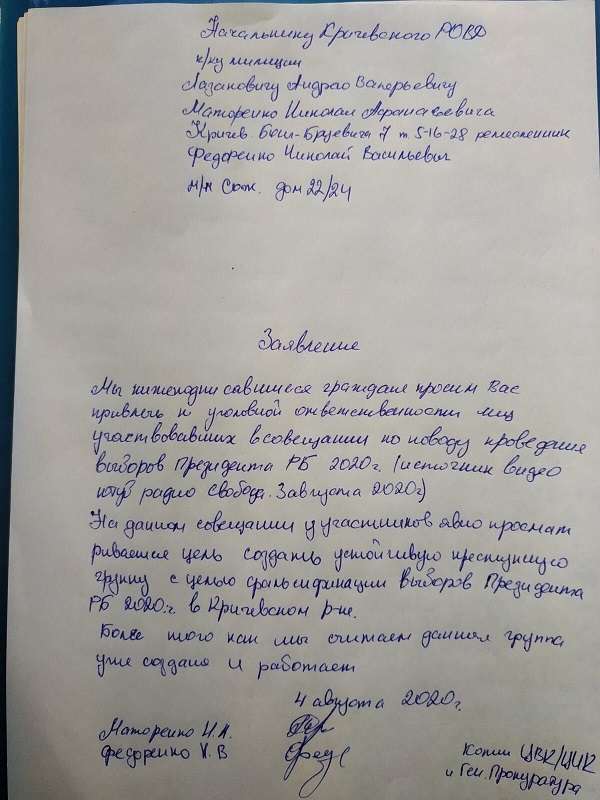 Начальнику Кричевского РОВД
п/ку милиции
Лазановичу Андрею Валерьевичу
Маторенко Николая Афанасьевича
Кричев Бонч-Бруевича 7 т. 5-16-28 ремесленник
Федоренко Николай Васильевич
м/н Сож. дом 22/24
Заявление
Мы нижеподписавшиеся граждане просим Вас
привлечь к уголовной ответственности лиц
участвовавших в совещании по поводу проведения
выборов Президента РБ 2020г. (источник видео
ютуб радио Свобода. 3 августа 2020г)
На данном совещании у участников явно просмат
ривается цель создать устойчивую преступную
группу с целью фальсификации выборов Президента
РБ 2020.г. в Кричевском р-не.
Более того как мы считаем данная группа
уже создана и работает
4 августа 2020г.
Маторенко Н.А.
Федоренко Н.В
Копии ЦВК/ЦИК
и Ген. Прокуратура